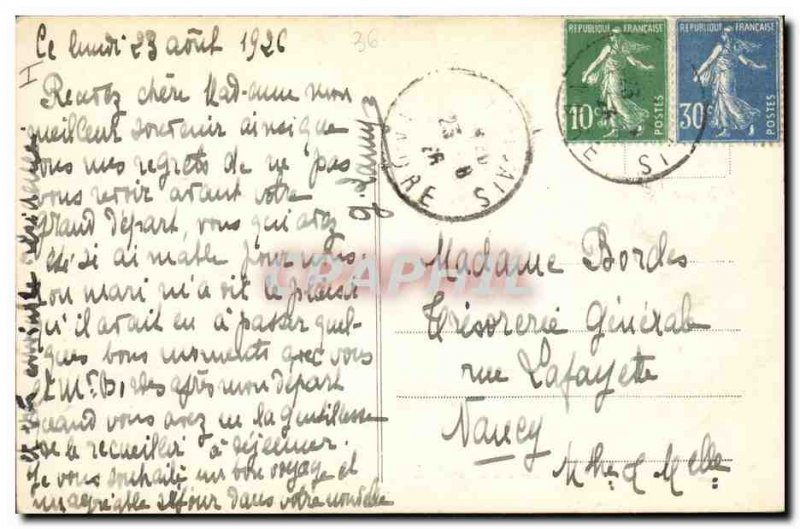 Ce lundi 23 août 1926
36
I
Recevez chère Madame mon
meilleur souvenir ainsi que
tous mes regrets de ne pas
vous revoir avant votre
grand départ, vous qui avez
été si aimable pour nous.
Mon mari m'a dit le plaisir
qu'il avait eu à passer quel-
ques bons moments avec vous
et Mr Bordes après mon départ
quand vous avez eu la gentillesse
de le recueillir à déjeuner.
Je vous souhaite un bon voyage et
un agréable séjour dans votre nouvelle
résidence
RÉPUBLIQUE FRANÇAISE
10c
POSTES
RÉPUBLIQUE FRANÇAISE
30c
POSTES
CPARAPHIL
Madame Bordes
Trésorerie Générale
rue Lafayette
Nancy
Mthe & Mlle